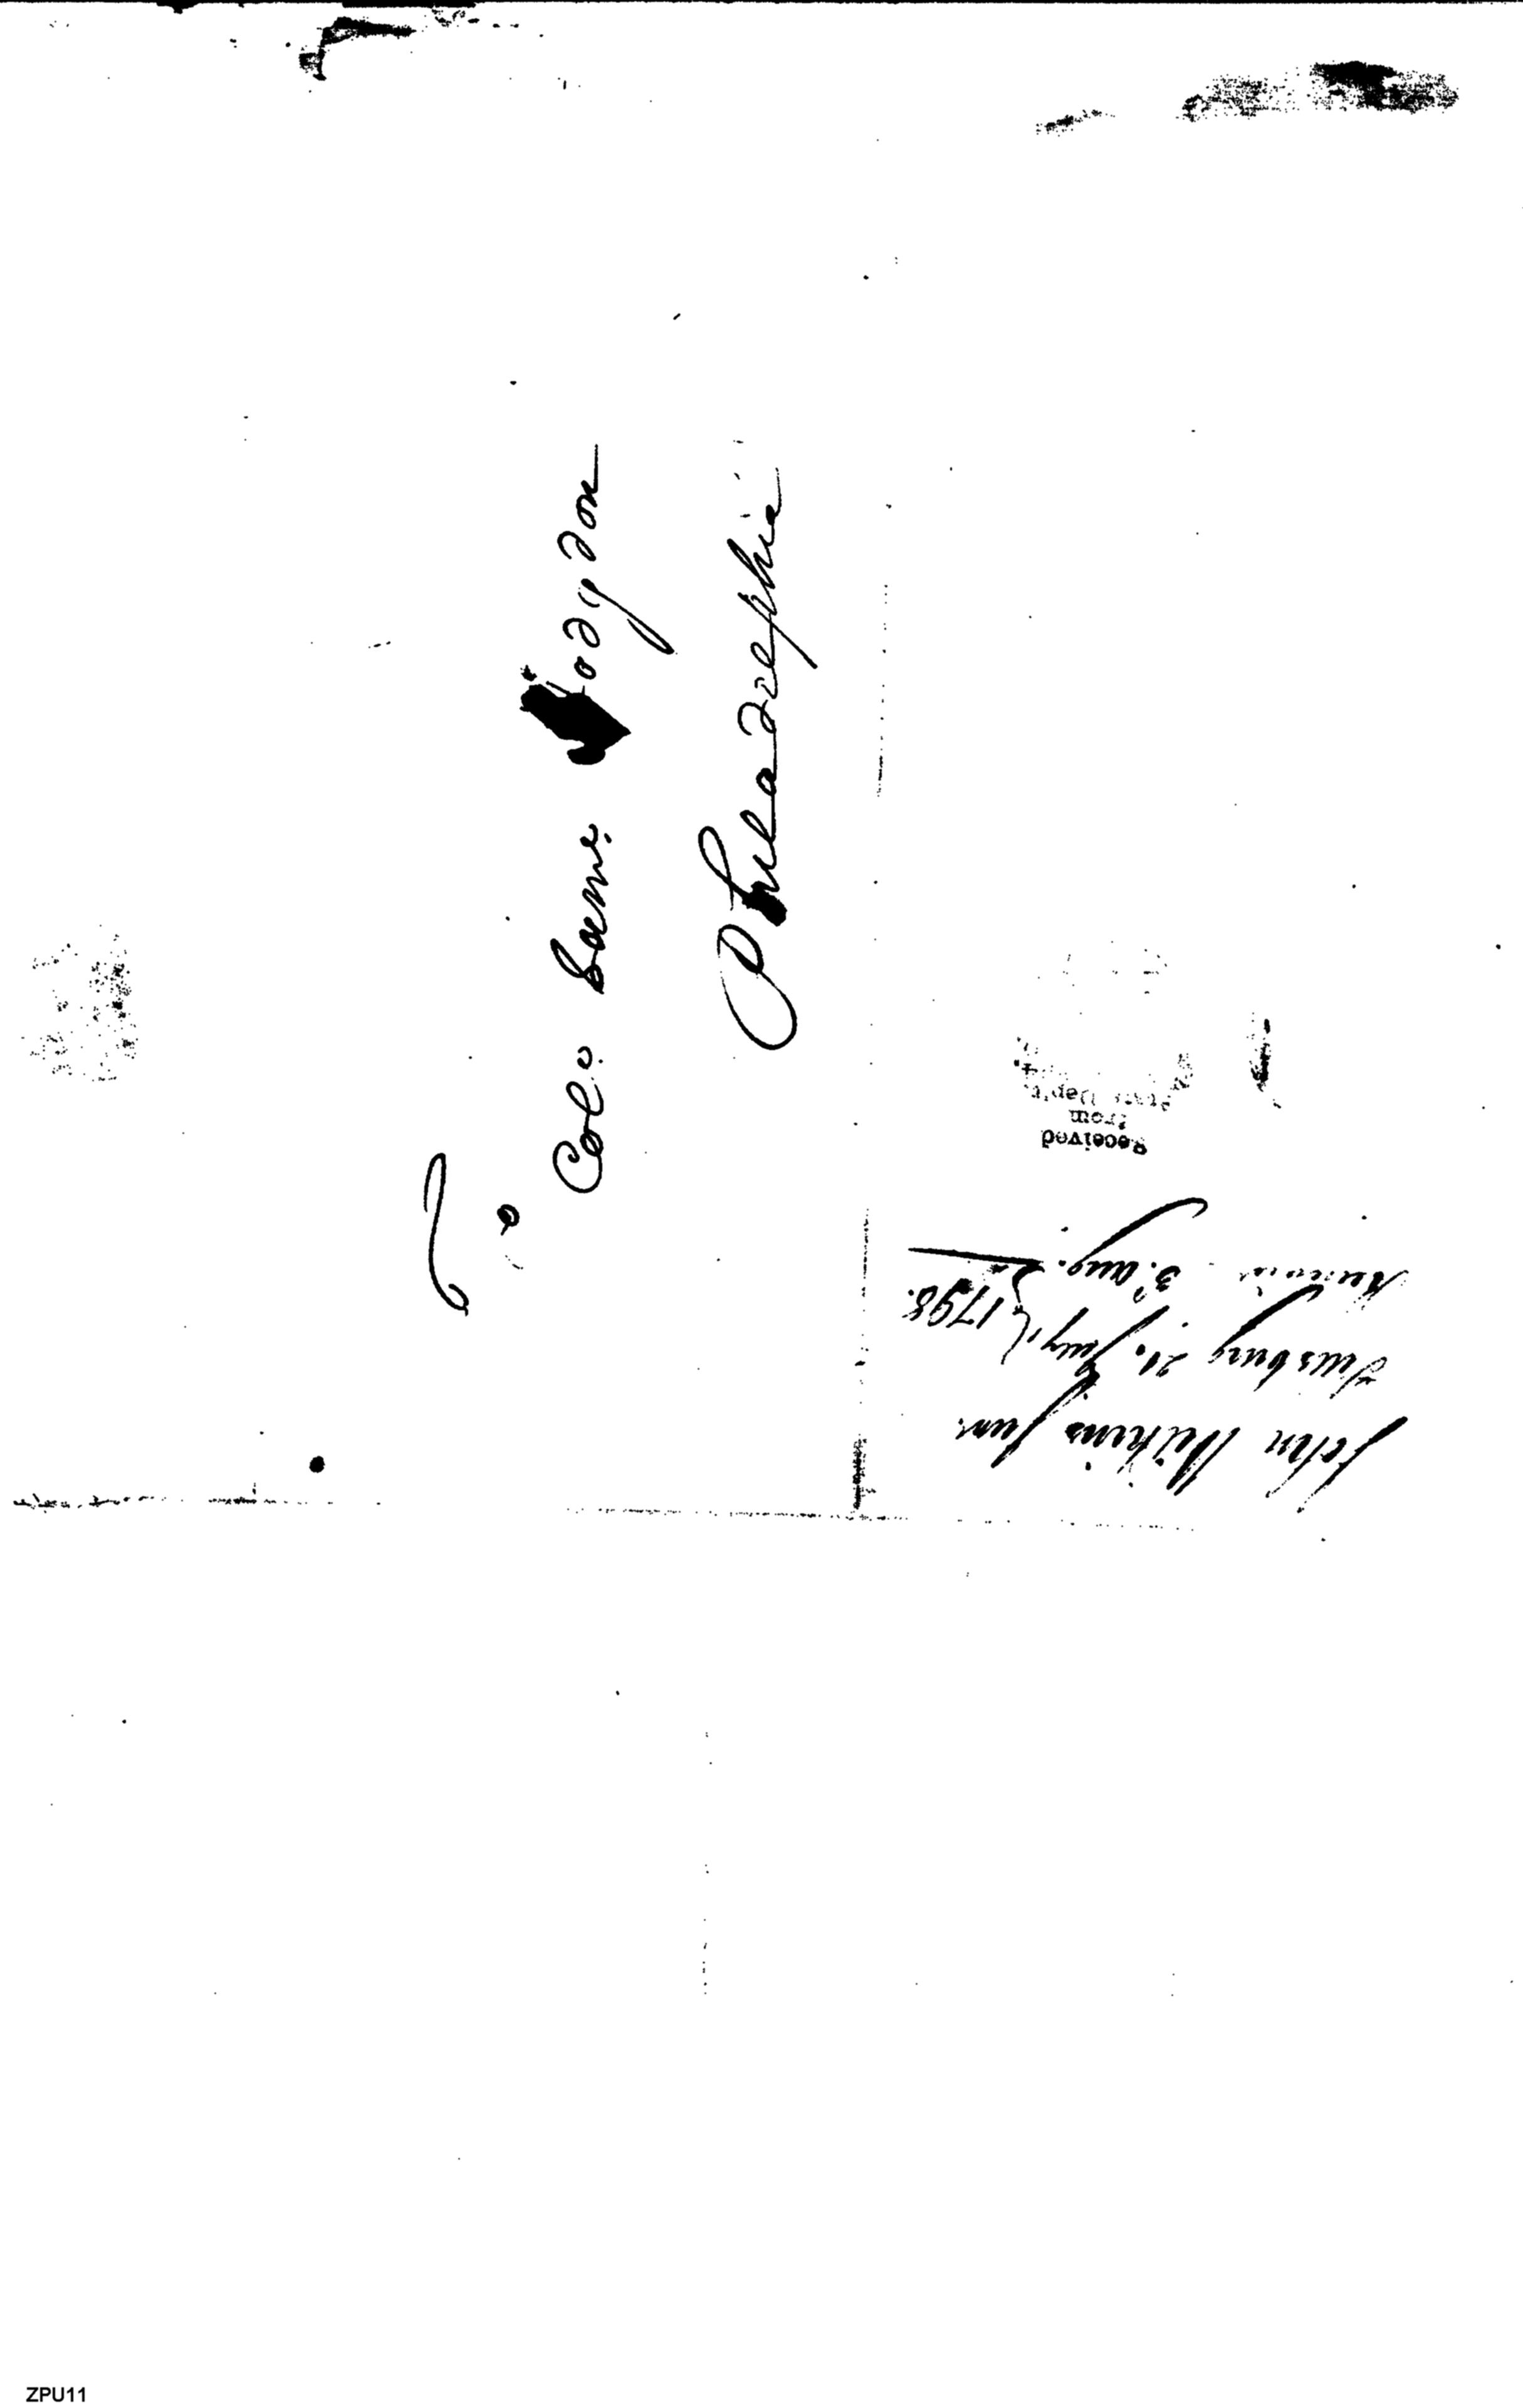 To
Colo. Saml. Hodgdon
Philadelphia
John Wilkins Junr.
burg 21. July
1798.
3d. Aug.
Received
from
State Dep't.
ZPU11